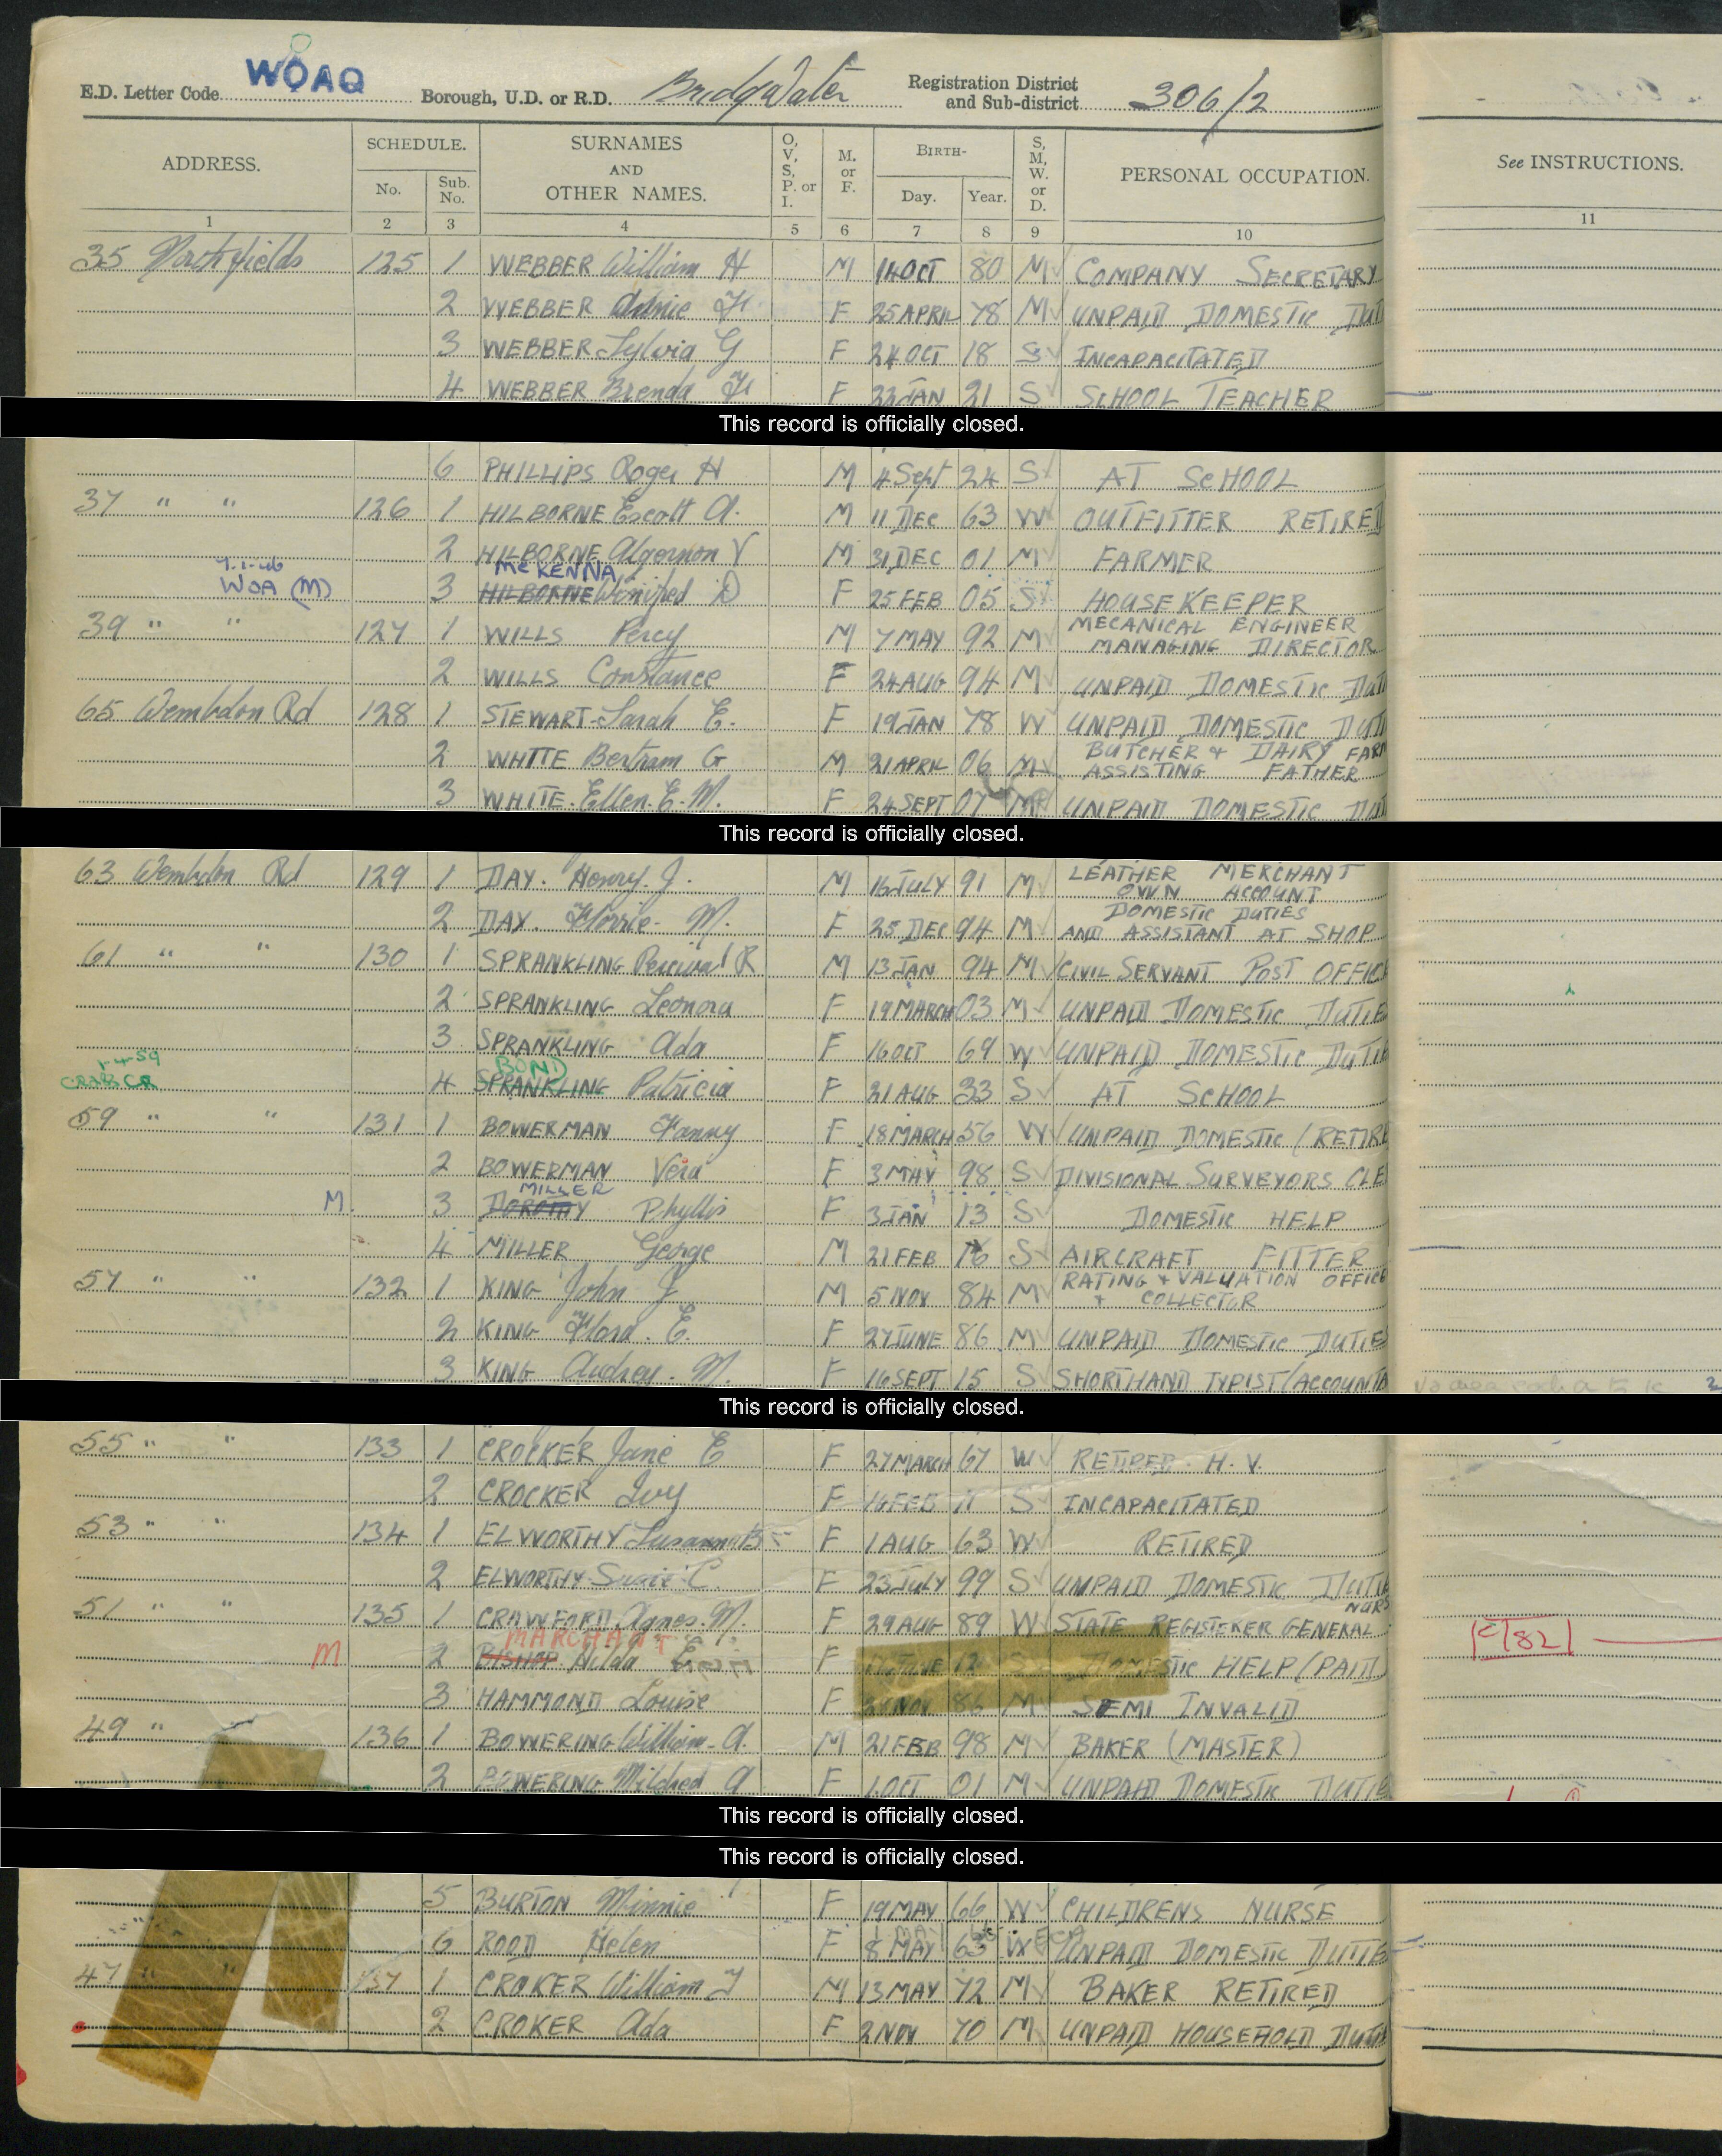 E.D. Letter Code WOAQ Borough, U.D. or R.D. BridgWater Registration District and Sub-district 306/2
ADDRESS. SCHEDULE. No. Sub. No. SURNAMES AND OTHER NAMES. O, V, S, P. or I. M. or F. BIRTH- Day. Year. S, M, W. or D. PERSONAL OCCUPATION. See INSTRUCTIONS.
1 2 3 4 5 6 7 8 9 10 11
35 Northfields 125 1 WEBBER William H M 14 OCT 80 M COMPANY SECRETARY
2 WEBBER Annie F F 25 APRIL 78 M UNPAID DOMESTIC DUT
3 WEBBER Sylvia G F 24 OCT 18 S INCAPACITATED
4 WEBBER Brenda F F 22 JAN 21 S SCHOOL TEACHER
This record is officially closed.
6 PHILLIPS Roger H M 4 Sept 24 S AT SCHOOL
37 " " 126 1 HILBORNE Escott A. M 11 DEC 63 W OUTFITTER RETIRED
2 HILBORNE Algernon V M 31 DEC 01 M FARMER
7-1-46 McKENNA
WOA (M) 3 HILBORNE Winifred D F 25 FEB 05 S HOUSEKEEPER
39 " " 127 1 WILLS Percy M 7 MAY 92 M MECANICAL ENGINEER MANAGING DIRECTOR
2 WILLS Constance F 24 AUG 94 M UNPAID DOMESTIC DUT
65 Wembdon Rd 128 1 STEWART Sarah E. F 19 JAN 78 W UNPAID DOMESTIC DUT
2 WHITE Bertram G M 21 APRIL 06 M BUTCHER & DAIRY FARM ASSISTING FATHER
3 WHITE. Ellen. E. M. F 24 SEPT 07 M UNPAID DOMESTIC DUT
This record is officially closed.
63 Wembdon Rd 129 1 DAY. Henry. J. M 16 JULY 91 M LEATHER MERCHANT OWN ACCOUNT
2 DAY. Florrie. M. F 25 DEC 94 M DOMESTIC DUTIES AND ASSISTANT AT SHOP
61 " " 130 1 SPRANKLING Percival R M 13 JAN 94 M CIVIL SERVANT POST OFFICE
2 SPRANKLING Leonora F 19 MARCH 03 M UNPAID DOMESTIC DUTIE
3 SPRANKLING Ada F 16 OCT 69 W UNPAID DOMESTIC DUTIE
1-4-59 BOND
CR 4 SPRANKLING Patricia F 21 AUG 33 S AT SCHOOL
59 " " 131 1 BOWERMAN Fanny F 18 MARCH 56 W UNPAID DOMESTIC (RETIRE
2 BOWERMAN Vera F 3 MAY 98 S DIVISIONAL SURVEYORS CLE
MILLER
M 3 DOROTHY Phyllis F 3 JAN 13 S DOMESTIC HELP
4 MILLER George M 21 FEB 16 S AIRCRAFT FITTER
57 " " 132 1 KING John J M 5 NOV 84 M RATING & VALUATION OFFICE & COLLECTOR
2 KING Flora. E. F 27 JUNE 86 M UNPAID DOMESTIC DUTIES
3 KING Audrey. M. F 16 SEPT 15 S SHORTHAND TYPIST/ACCOUNTA
This record is officially closed.
55 " " 133 1 CROCKER Jane E F 27 MARCH 67 W RETIRED H. V.
2 CROCKER Ivy F 16 FEB 11 S INCAPACITATED
53 " " 134 1 ELWORTHY Susanna B F 1 AUG 63 W RETIRED
2 ELWORTHY Susie C. F 23 JULY 99 S UNPAID DOMESTIC DUTIE
51 " " 135 1 CRAWFORD Agnes. M. F 29 AUG 89 W STATE REGISTERER GENERAL NURS
MARCHANT
M 2 BISHOP Hilda E F JUNE 12 S DOMESTIC HELP (PAID) C/82
3 HAMMOND Louise F NOV 86 M SEMI INVALID
49 " 136 1 BOWERING William. A. M 21 FEB 98 M BAKER (MASTER)
2 BOWERING Mildred A F 1 OCT 01 M UNPAID DOMESTIC DUTIE
This record is officially closed.
This record is officially closed.
5 BURTON Minnie F 19 MAY 66 W CHILDRENS NURSE
6 ROOD Helen F 8 MAY 63 W UNPAID DOMESTIC DUTIE
47 " " 137 1 CROKER William J M 13 MAY 72 M BAKER RETIRED
2 CROKER Ada F 2 NOV 70 M UNPAID HOUSEHOLD DUTIE